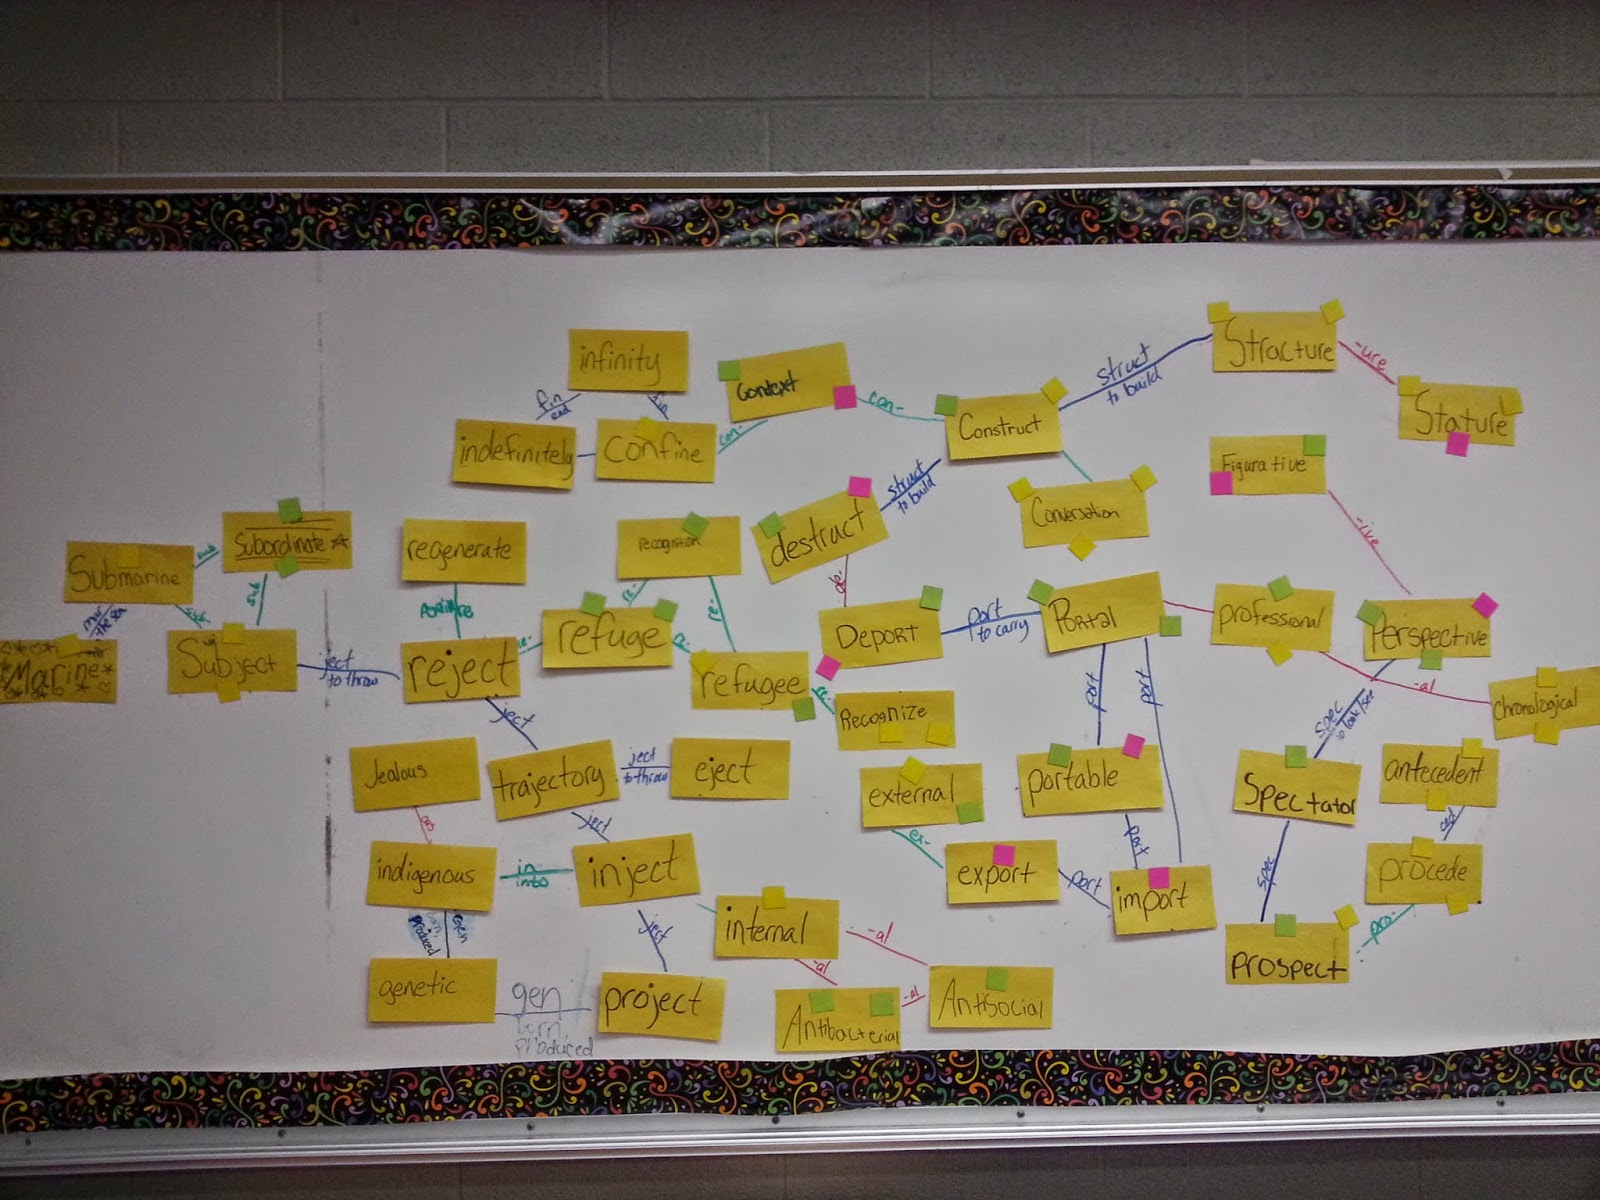 infinity
fin
end
fin
indefinitely
confine
con-
Context
con-
Construct
struct
to build
Stracture
-ure
Stature
Figurative
-ive
Conversation
struct
to build
destruct
de-
Submarine
sub
Subordinate
sub
sub
mar
the sea
Marine
Subject
ject
to throw
regenerate
Again re
reject
re-
refuge
recognition
re-
re-
re-
refugee
re-
Recognize
DEPORT
port
to carry
PORTAL
professional
Perspective
-al
chronological
spec
to look/see
port
port
portable
port
import
port
export
ex-
external
ject
trajectory
ject
to throw
eject
ject
Jealous
ous
indigenous
in
into
inject
gen
produced
genetic
gen
born,
produced
project
ject
internal
-al
-al
Antibacterial
-al
ANTiSOCiAL
Spectator
spec
prospect
pro-
procede
ced
antecedent